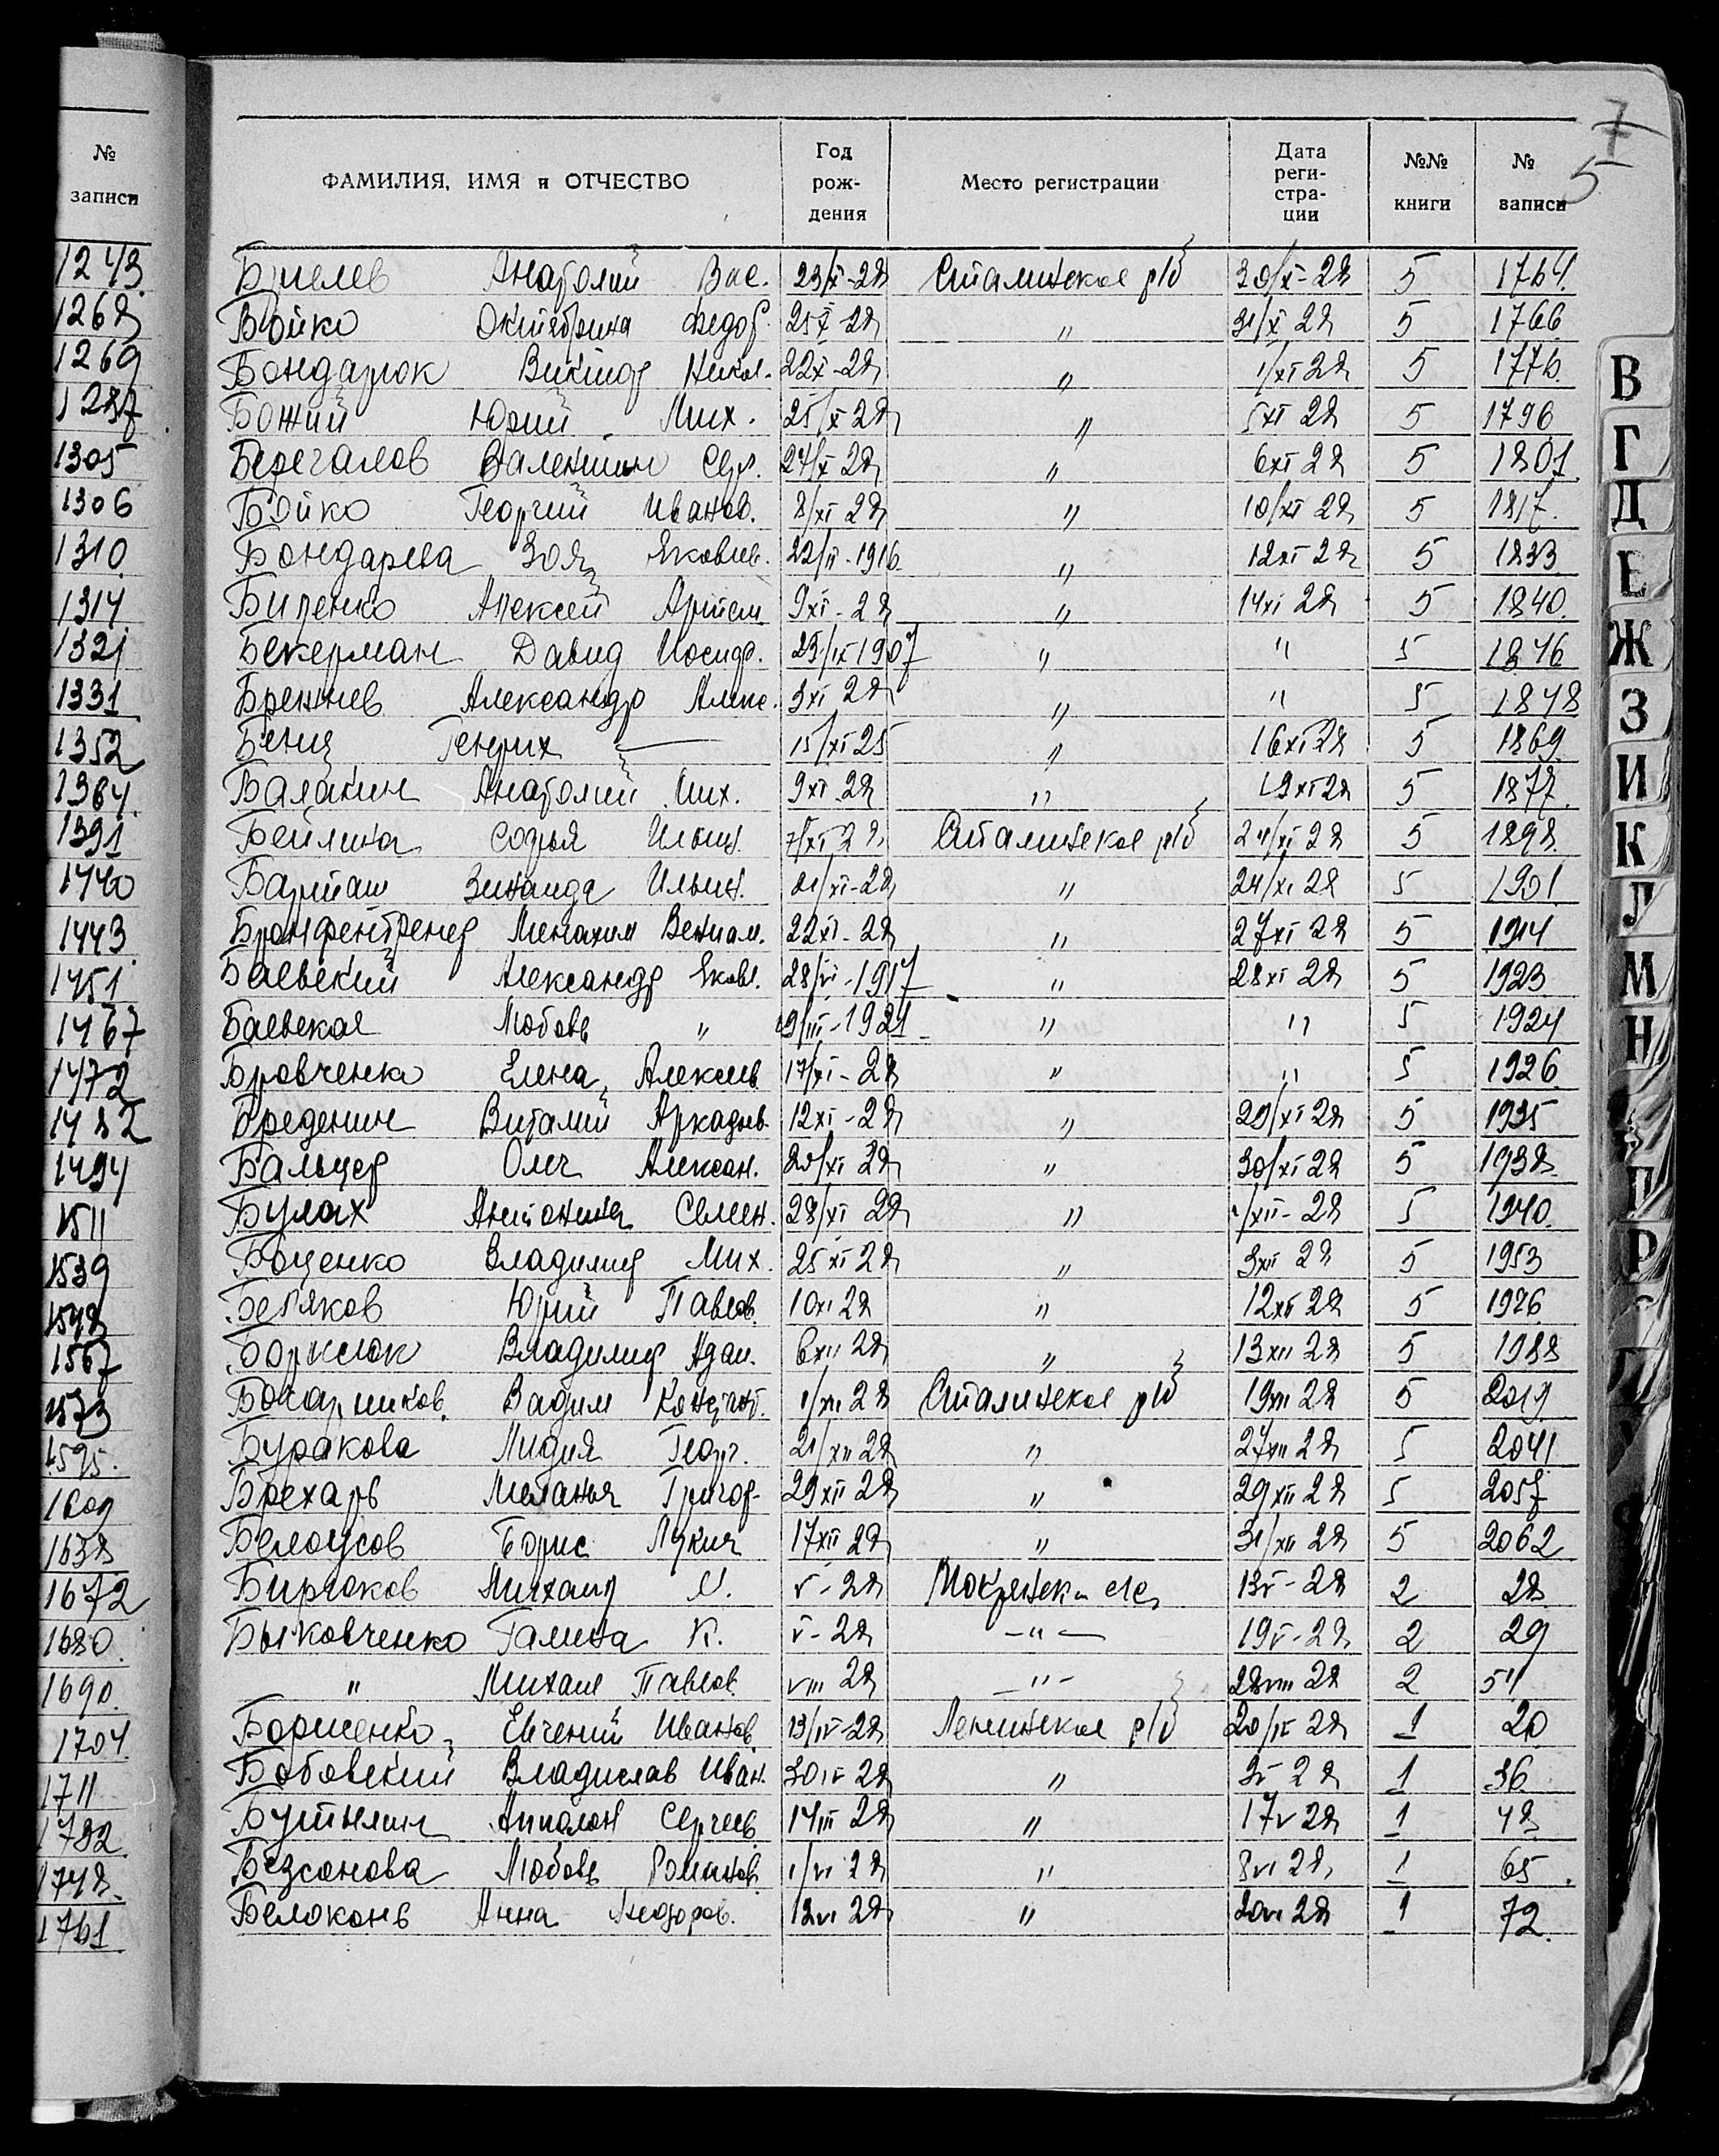 № записи
1243
1268
1269
1287
1305
1306
1310
1314
1321
1331
1352
1364
1391
1440
1443
1451
1467
1472
1482
1494
1511
1539
1548
1567
1573
1595
1609
1638
1672
1680
1690
1704
1711
1732
1748
1761
7
5
ФАМИЛИЯ, ИМЯ и ОТЧЕСТВО Год рож- дения Место регистрации Дата реги- стра- ции №№ книги № записи
Анатолий Вас. 23/X-28 Сталинское р/б 30/X-28 5 1764
Бойко Октябрина Федор. 25X-28 " 31/X 28 5 1766
Бондарюк Виктор Никол. 22X-28 " 1/XI 28 5 1776
Божий Юрий Мих. 25/X 28 " 5XI 28 5 1796
Берегалов Валентин Сер. 24/X 28 " 6XI 28 5 1801
Бойко Георгий Иванов. 8/XI 28 " 10/XI 28 5 1817
Бондарева Зоя Яковлев. 1916 " 12XI 28 5 1833
Биленко Алексей Артем 9XI-28 " 14XI 28 5 1840
Бекерман Давид Иосиф. 1907 " " 5 1846
Брежнев Александр Алекс. 3XI 28 " " 5 1848
Генрих — 15/XI 25 " 16XI 28 5 1869
Балакин Анатолий Мих. 9XI 28 " 19XI 28 5 1877
Бейлина Софья Ильин. 7/XI 28 Сталинское р/б 24/XI 28 5 1898
Барташ Зинаида Ильин. 21/XI-28 " 24/XI 28 5 1901
Бронфентренер Менахим Вениам. 22XI-28 " 27XI 28 5 1914
Баевский Александр Яковл. 28/VI-1917 " 28XI 28 5 1923
Баевская Любовь " 19/III-1921 " " 5 1924
Бровченко Елена Алексеев 17/XI-28 " " 5 1926
Бреденин Виталий Аркадьев. 12XI-28 " 29/XI 28 5 1935
Бальцер Олег Алексан. 20/XI 28 " 30/XI 28 5 1938
Булах Антонина Семен. 28/XI 28 " 1/XII-28 5 1940
Боценко Владимир Мих. 25XI 28 " 3XII 28 5 1953
Беляков Юрий Павлов. 10XI 28 " 12XII 28 5 1976
Борксюк Владимир Адам. 6XII 28 " 13XII 28 5 1988
Бочарников Вадим Констант. 1/XII 28 Сталинское р/б 19XII 28 5 2019
Буракова Лидия Георг. 21/XII 28 " 27XII 28 5 2041
Брехарь Меланья Григор. 29XII 28 " 29XII 28 5 2057
Белоусов Борис Лукич 17XII 28 " 31/XII 28 5 2062
Бирюков Михаил V-28 13V-28 2 28
Быковченко Галина К. V-28 -"- 19V-28 2 29
" Михаил Павлов. VIII 28 -"- 28VIII 28 2 51
Борисенко Евгений Иванов. 13/IV-28 Ленинское р/б 20/IV 28 1 20
Бобовский Владислав Иван. 30IV 28 " 3V 28 1 36
Бутылин Апполон Сергеев. 14III 28 " 17V 28 1 48
Безсонова Любовь Романов. 1/VI 28 " 8VI 28 1 65
Белоконь Анна Федоров. 12VI 28 " 20VI 28 1 72
В
Г
Д
Е
Ж
З
И
К
Л
М
Н
П
Р